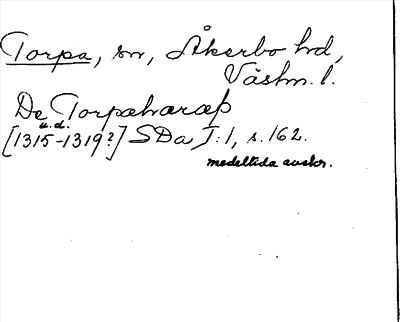 Torpa, sn, Åkerbo hd,
Västm. l.
De Torpaharæþ
u.d.
[1315-1319?] SDa I:1, s. 162.
medeltida avskr.